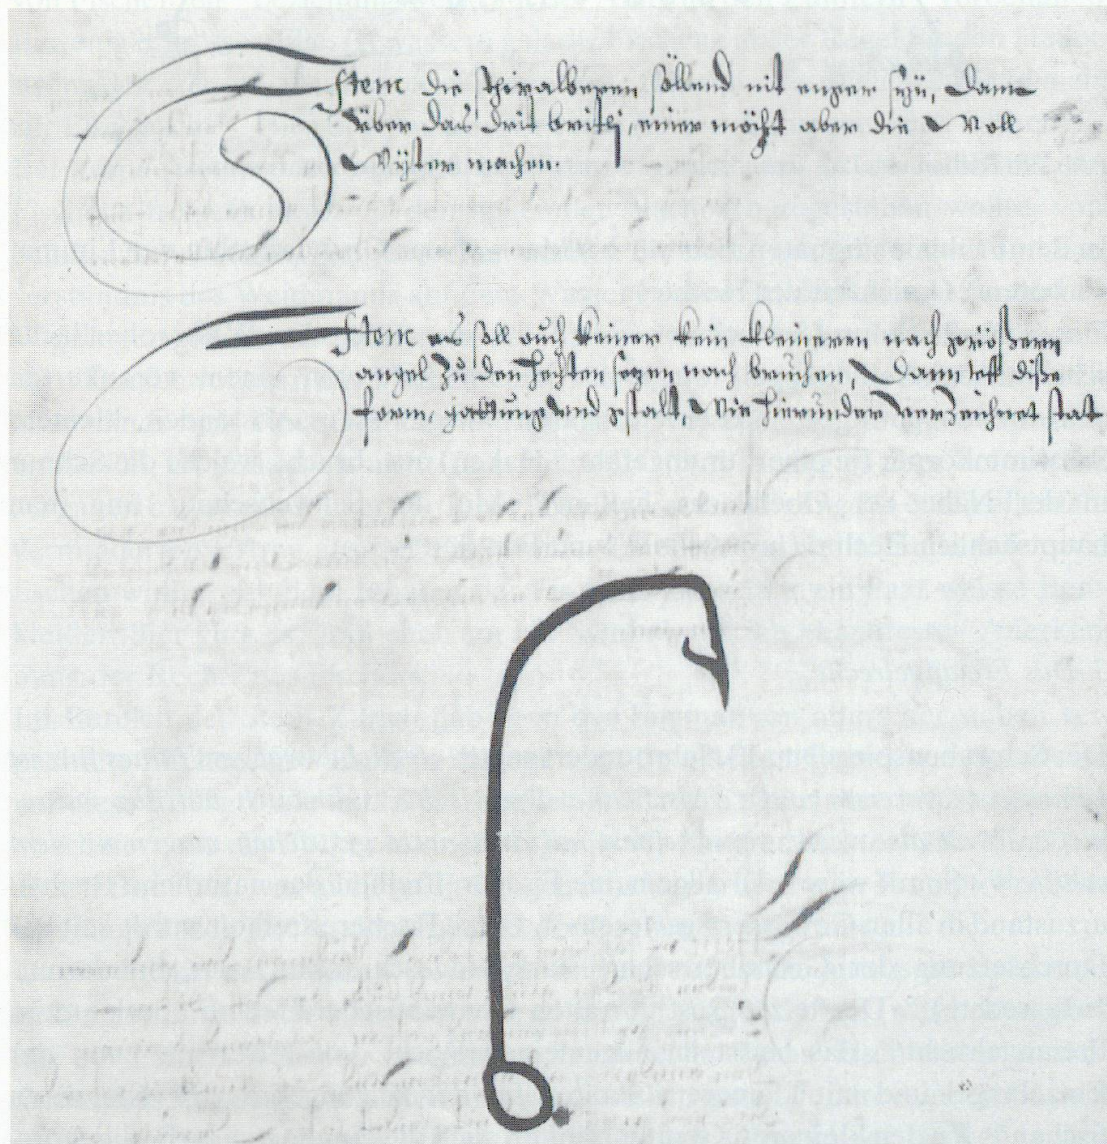 Item die schwalberen söllend nit enger syn, dann
über das drit britlj, einer möcht aber die Woll
Wyter machen.
Item es soll ouch keiner kein kleineren nach grössern
angel zu den Hechten setzen nach bruchen, Dann uff dise
form, gattung und gstalt, Wie hierunder verzeichnet stat